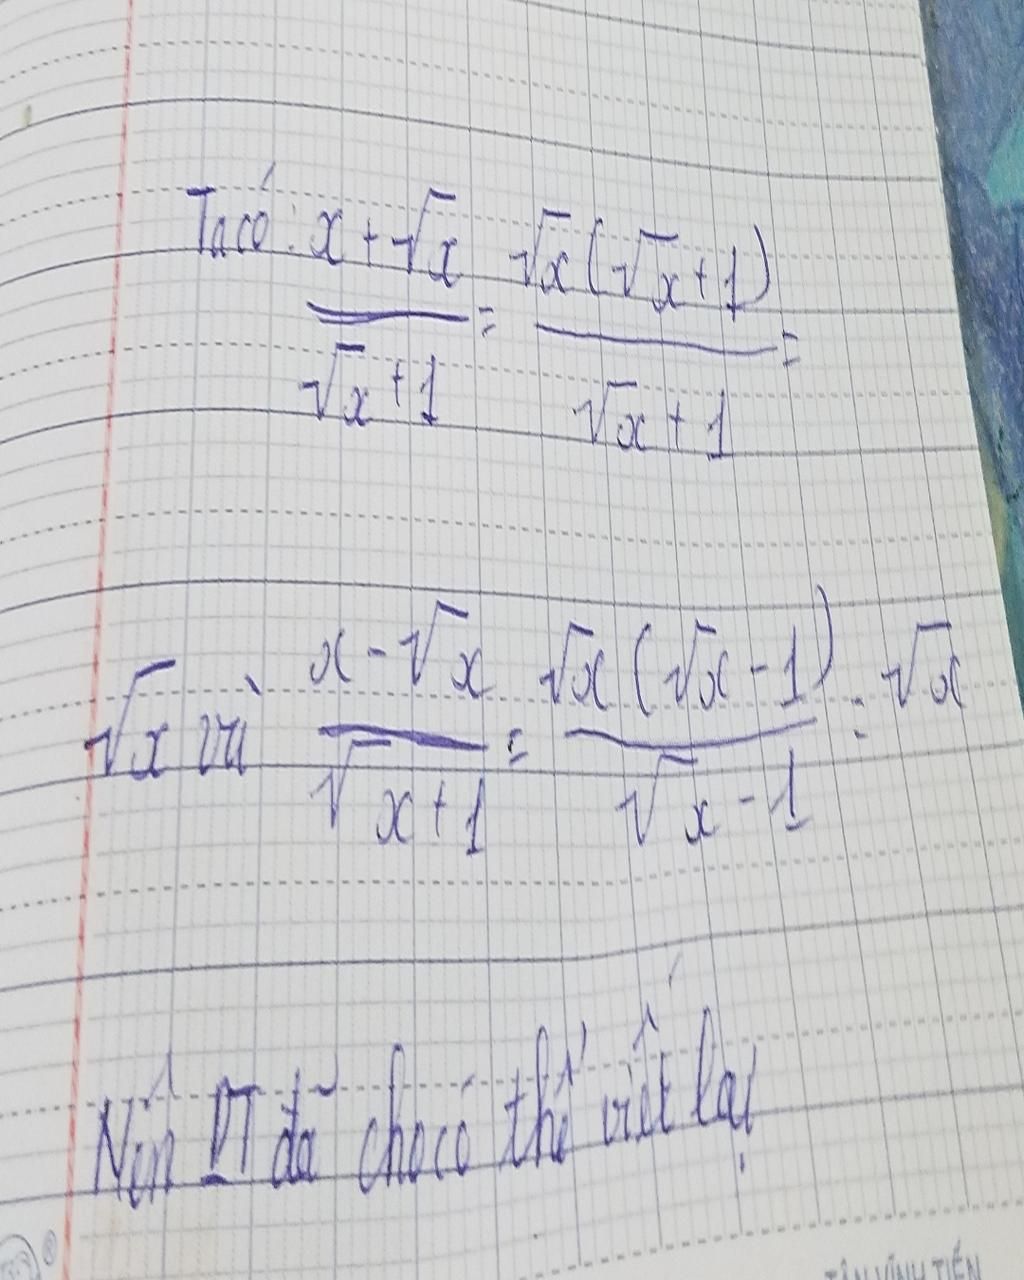 Ta có: x + √x / √x + 1 = √x (√x + 1) / √x + 1 =
√x và x - √x / √x + 1 = √x (√x - 1) / √x - 1 = √x
Nên PT đã cho có thể viết lại
TÂN VĨNH TIẾN